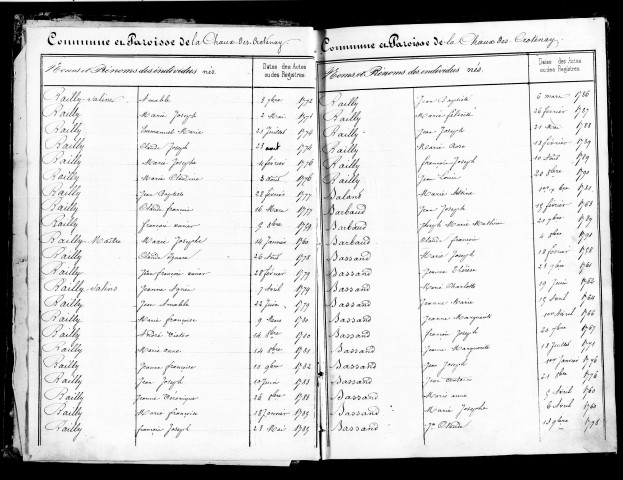 Commune et Paroisse de la Chaux des Crotenay
Noms et Prénoms des individus nés. Dates des Actes ou des Registres
Railly-Salins Amable 3 9bre 1772
Railly Marie Joseph 2 Mai
Railly Emmanuel Marie 21 Juillet 1774
Railly Claude Joseph 23 aout 1774
Railly Marie Josephe 4 février 1776
Railly Marie Claudine 3 Aout 1776
Railly Jean Baptiste 28 février 1777
Railly Claude francois 16 Mars 1777
Railly francois xavier 9 8bre
Railly-Maitre Marie Josephe 14 Janvier 1760
Railly Claude 26 Aout 1778
Railly Jean francois xavier 28 février 1779
Railly-Salins Jeanne Agnès 7 Avril 1779
Railly Jean Amable 22 Juin 1779
Railly Marie françoise 9 Mars 1780
Railly André Victor 14 8bre 1780
Railly Marie anne 14 8bre 1781
Railly Jeanne françoise 10 9bre 1782
Railly Jean Joseph 1783
Railly Jeanne Veronique 26 1783
Railly Marie françoise 18 Janvier 1785
Railly francois Joseph 23 Mai 1785
Commune et Paroisse de la Chaux des Crotenay
Noms et Prénoms des individus nés. Dates des Actes ou des Registres
Railly Jean Baptiste 6 mars 1786
Railly Marie félicité 26 février 1787
Railly Jean Joseph 21 Mai 1788
Railly Marie Rose 13 février 1789
Railly francois Joseph 10 Aout 1789
Railly Jean Louis 20 8bre 1790
Baland Marie
Barbaud Jean Joseph 12 février 1763
Barbaud Joseph Marie Mathieu 21 9bre
Barbaud Claude francois 4 9bre
Bassand Marie Joseph 18 février 1758
Bassand Jeanne Thérèse 21 9bre 1761
Bassand Marie Charlotte 19 Juin 1762
Bassand Jeanne Marie 15 Avril 1764
Bassand Jeanne Marguerite 1er Avril 1766
Bassand françois Joseph 20 9bre 1767
Bassand Jeanne Marguerite 18 Juillet 1771
Bassand Jean Joseph 1er Janvier 1776
Bassand Jean Antoine 21 8bre 1776
Bassand Marie anne 5 Avril 1760
Bassand Marie Josephe 6 Avril 1760
Bassand Jn Claude 13 9bre